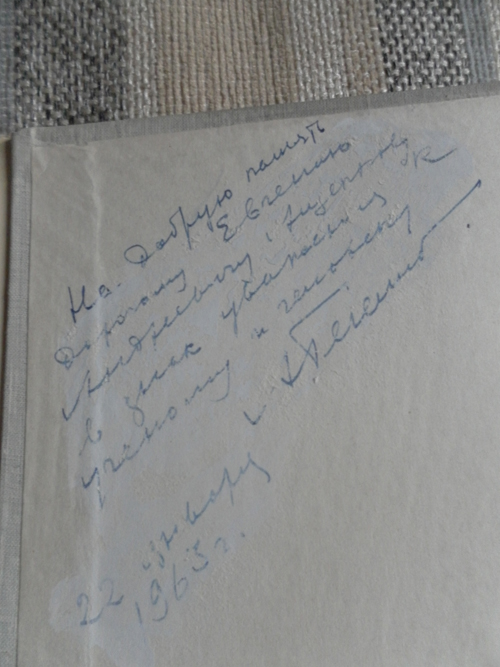 На добрую память
Дорогому Евгению
Андреевичу,
в знак уважения к
ученому и человеку
22 января
1963 г.